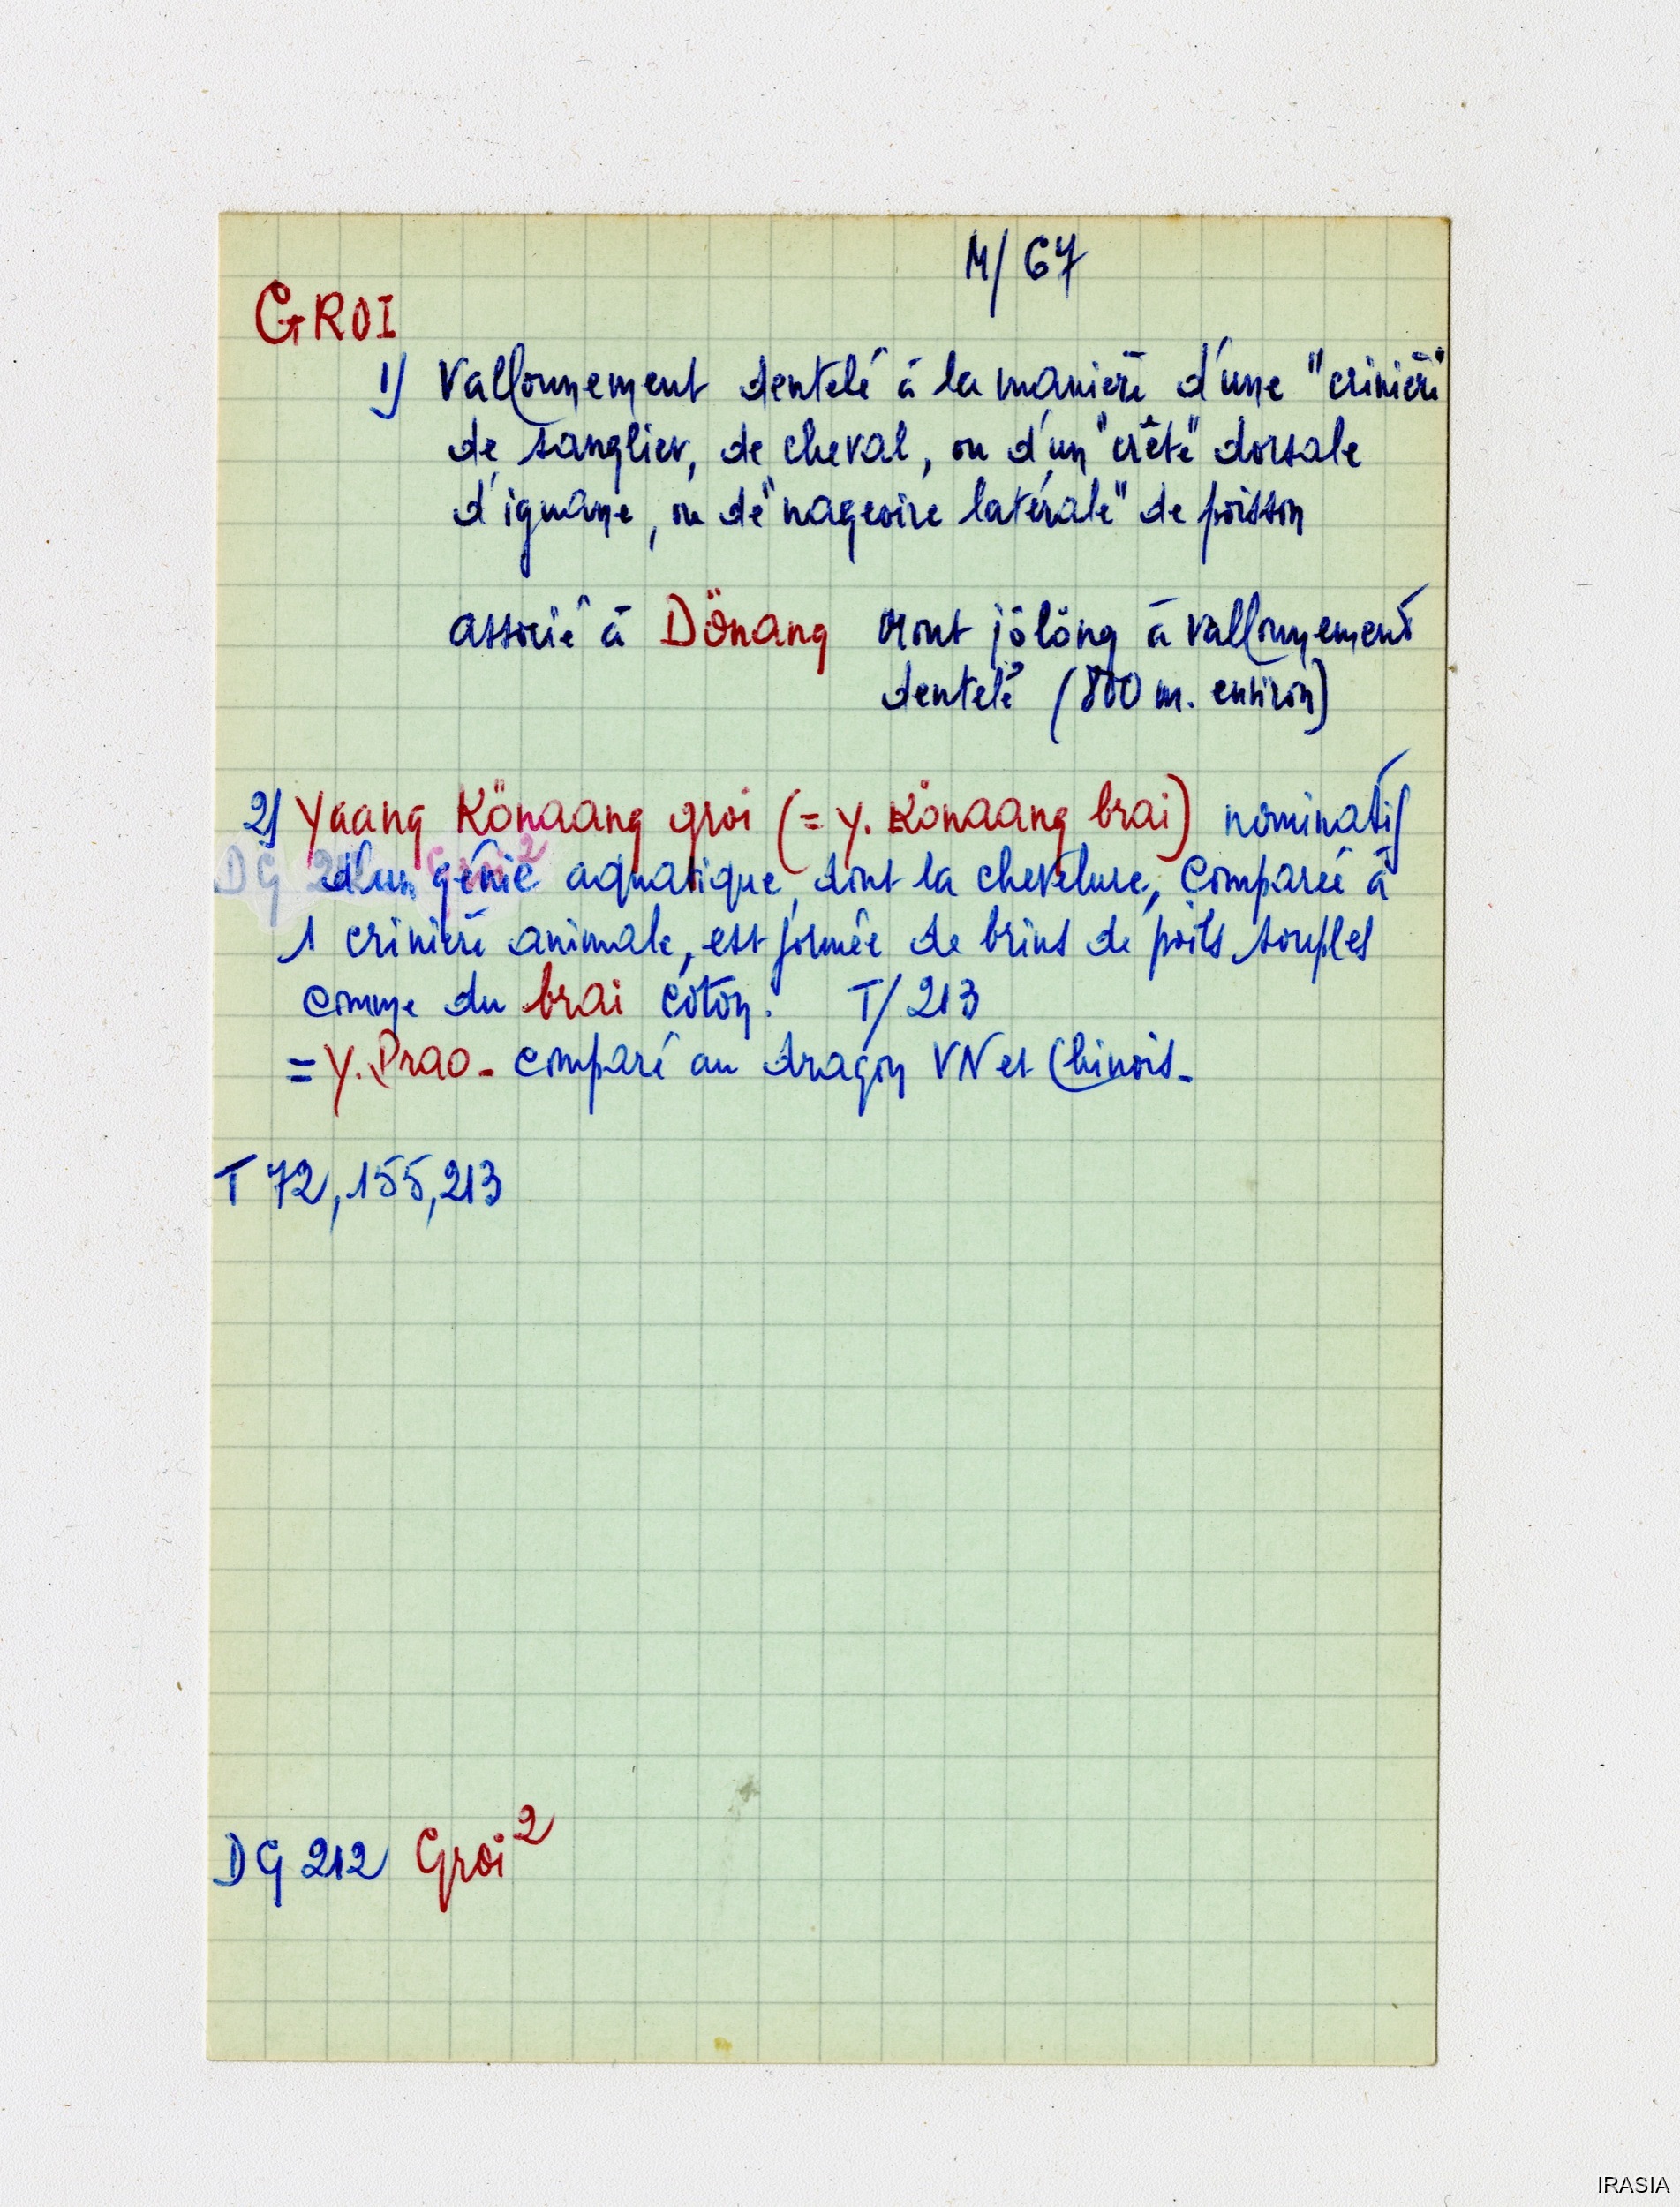 M/67
GROI
1) Vallonnement dentelé à la manière d'une "crinière"
de sanglier, de cheval, ou d'un "crête" dorsale
d'iguane, ou de "nageoire latérale" de poisson
associé à Dönang Mont jölöng à vallonnement
dentelé (800 m. environ)
2) Yaang Könaang groi (= Y. Könaang brai) nominatif
d'un génie aquatique, dont la chevelure, comparée à
1 crinière animale, est formée de brins de poils souples
comme du brai coton. T/213
= Y. Prao - comparé au dragon VN et Chinois -
T 72, 155, 213
DG 212 Groi²
IRASIA